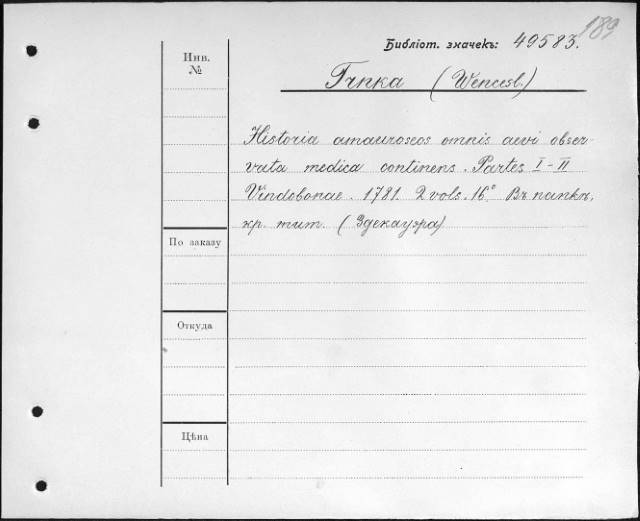 189
Библіот. значекъ: 49583.
Инв.
№
Trnka (Wencesl.)
Historia amauroseos omnis aevi obser-
vata medica continens. Partes I-II
Vindobonae. 1781. 2 vols. 16° Въ папкѣ,
кр. тит. (Здекауэра)
По заказу
Откуда
Цѣна